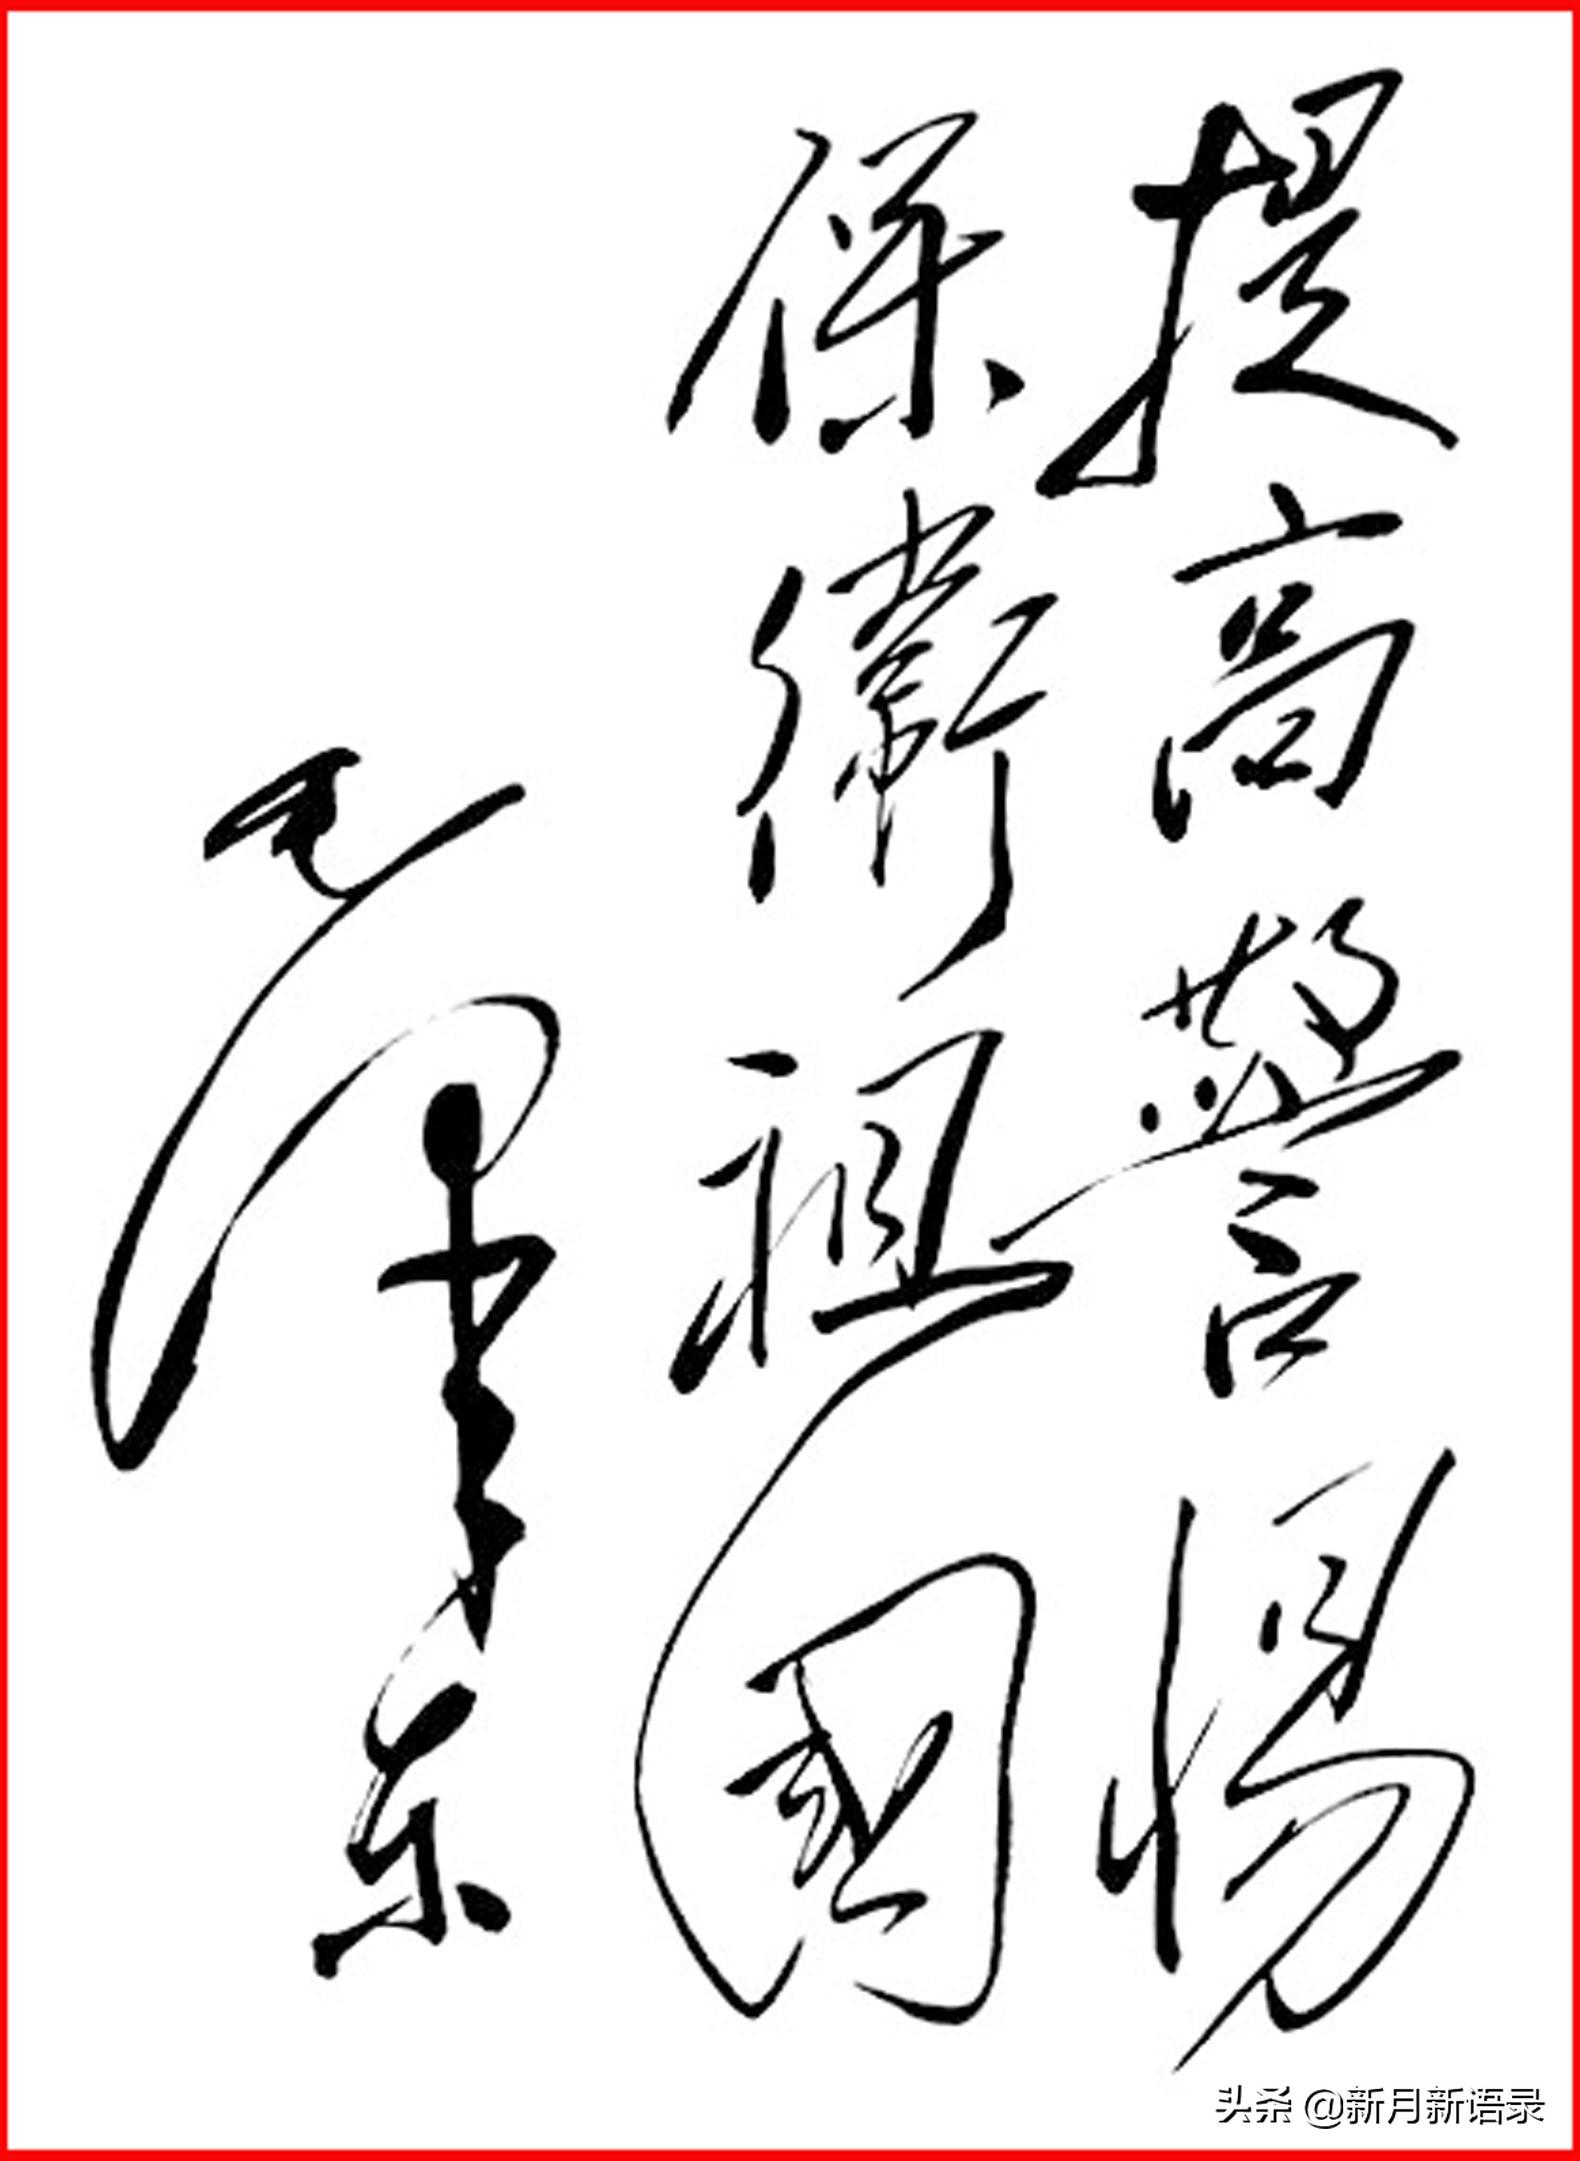 提高警惕
保衛祖國
毛泽东
头条 @新月新语录